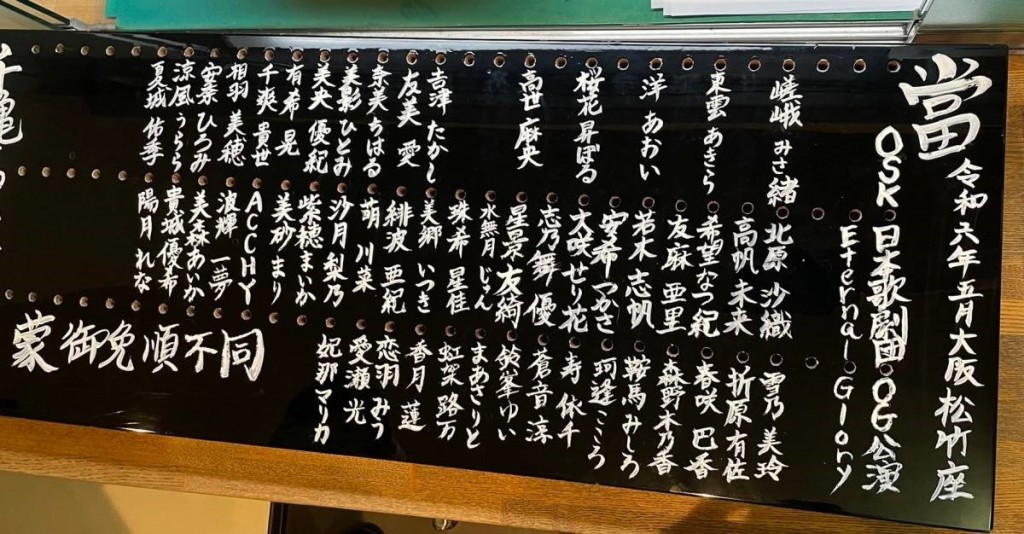 當
令和六年五月大阪松竹座
OSK日本歌劇団OG公演
Eternal Glory
嵯峨 みさ緒
東雲 あきら
洋 あおい
桜花 昇ぼる
高世 麻央
吉津 たかし
友美 愛
奈美 ちはる
美影 ひとみ
美央 優紀
有希 晃
千爽 貴世
相羽 美穂
ひつみ
涼風 うらら
夏城 佑季
北原 沙織
高帆 未来
希望なつ紀
友麻 亜里
若木 志帆
安希つかさ
大咲せり花
志乃舞 優
星景 友綺
水無月 じゅん
珠希 星佳
美郷 いつき
緋波 亜紀
萌 川菜
沙月 梨乃
紫穂まいか
美砂 まり
ACCHY
波輝 一夢
美森あいか
貴城優希
陽月 れな
雪乃 美玲
折原 有佐
春咲 巴香
森野木乃香
鞍馬みしろ
珂逢こころ
寿 依千
蒼音 淳
鈴峯ゆい
まあさりと
虹架 路万
香月 蓮
恋羽 みう
愛瀬 光
妃那マリカ
蒙御免順不同